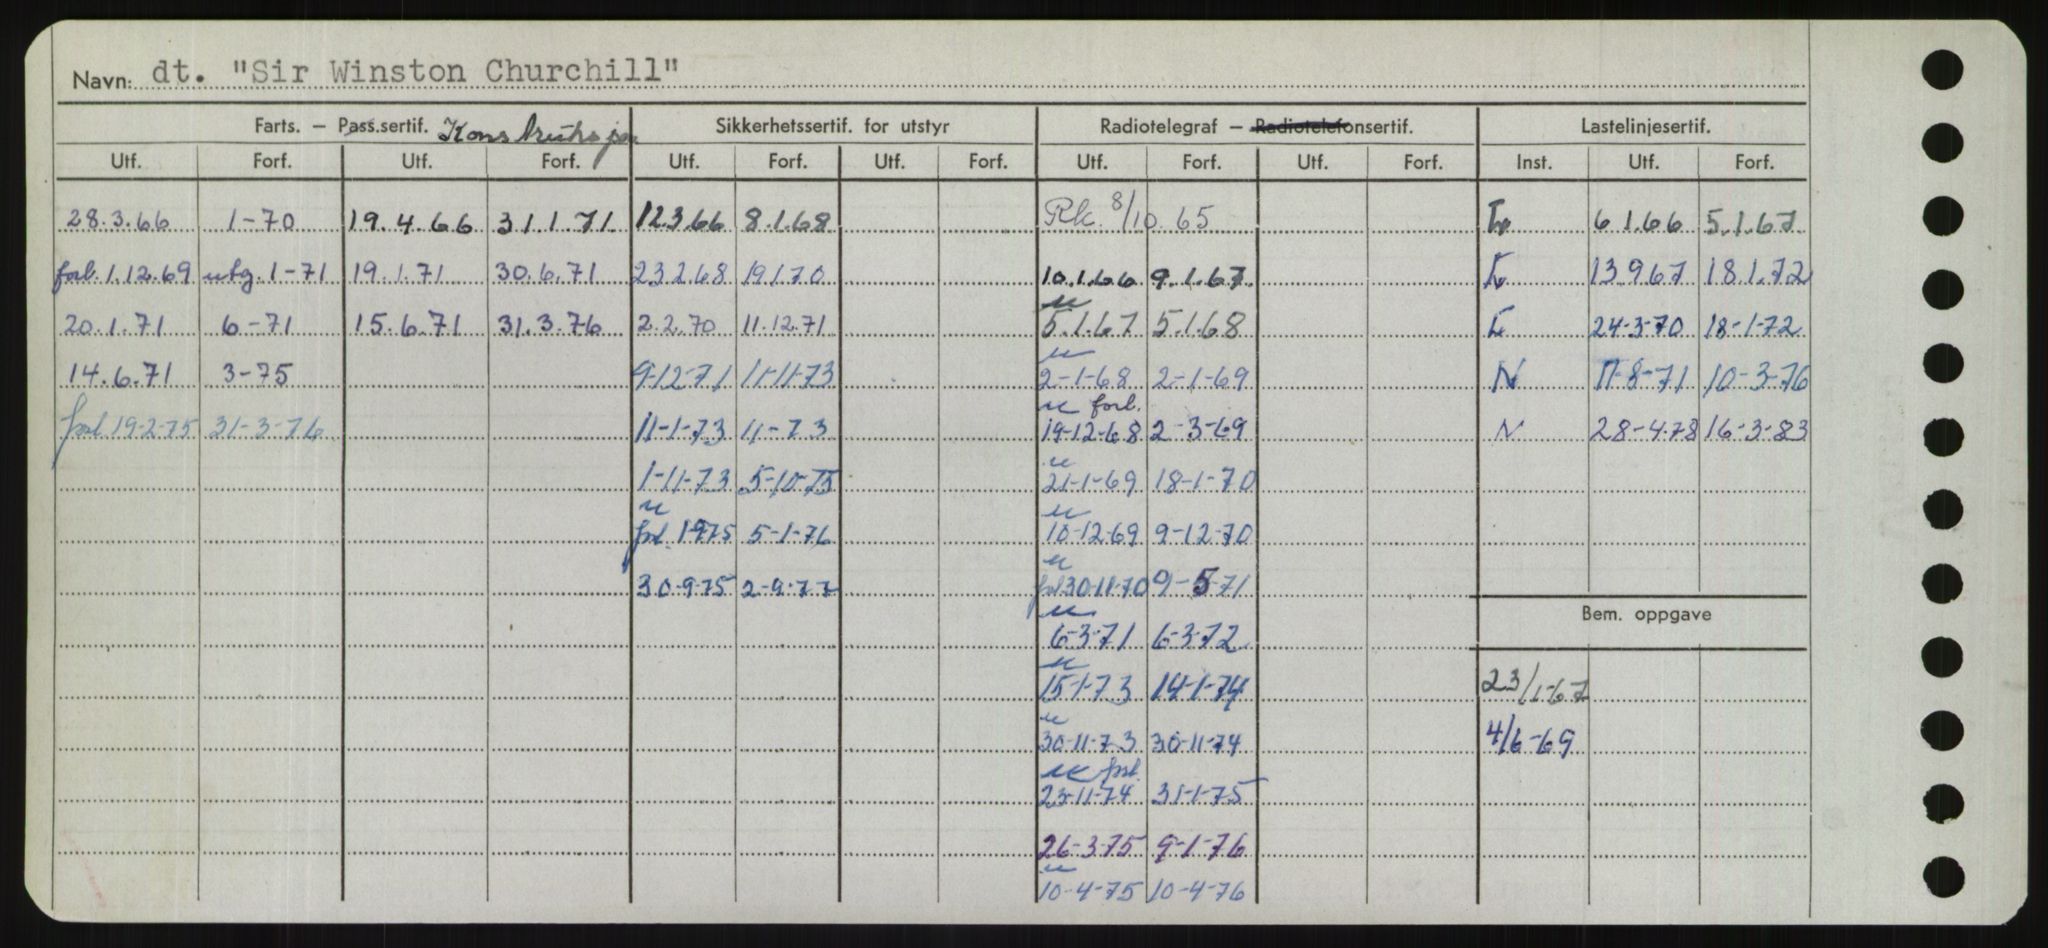 Navn: dt. "Sir Winston Churchill"
Farts. – Pass.sertif. Sikkerhetssertif. for utstyr Radiotelegraf – Radiotelefonsertif. Lastelinjesertif.
Utf. Forf. Utf. Forf. Utf. Forf. Utf. Forf. Utf. Forf. Utf. Forf. Inst. Utf. Forf.
28.3.66 1-70 19.4.66 31.1.71 12.3.66 8.1.68 Rk. 8/10.65 6.1.66 5.1.67
forl. 1.12.69 utg. 1-71 19.1.71 30.6.71 23.2.68 19.1.70 10.1.66 9.1.67 13.9.67 18.1.72
20.1.71 6-71 15.6.71 31.3.76 2.2.70 11.12.71 5.1.67 5.1.68 24-3-70 18-1-72
14.6.71 3-75 9-12-71 11-11-73 2-1-68 2-1-69 N 11-8-71 10-3-76
forl.
forl 19-2-75 31-3-76 11-1-73 11-73 19-12-68 2-3-69 N 28-4-78 16-3-83
1-11-73 5-10-75 21-1-69 18-1-70
forl. 5-1-76 10-12-69 9-12-70
30-9-75 2-9-77 forl 30-11-70 9-5-71
Bem. oppgave
6-3-71 6-3-72
15-1-73 14-1-74 23/1-67
30-11-73 30-11-74 4/6-69
forl.
23-11-74 31-1-75
26-3-75 9-1-76
10-4-75 10-4-76